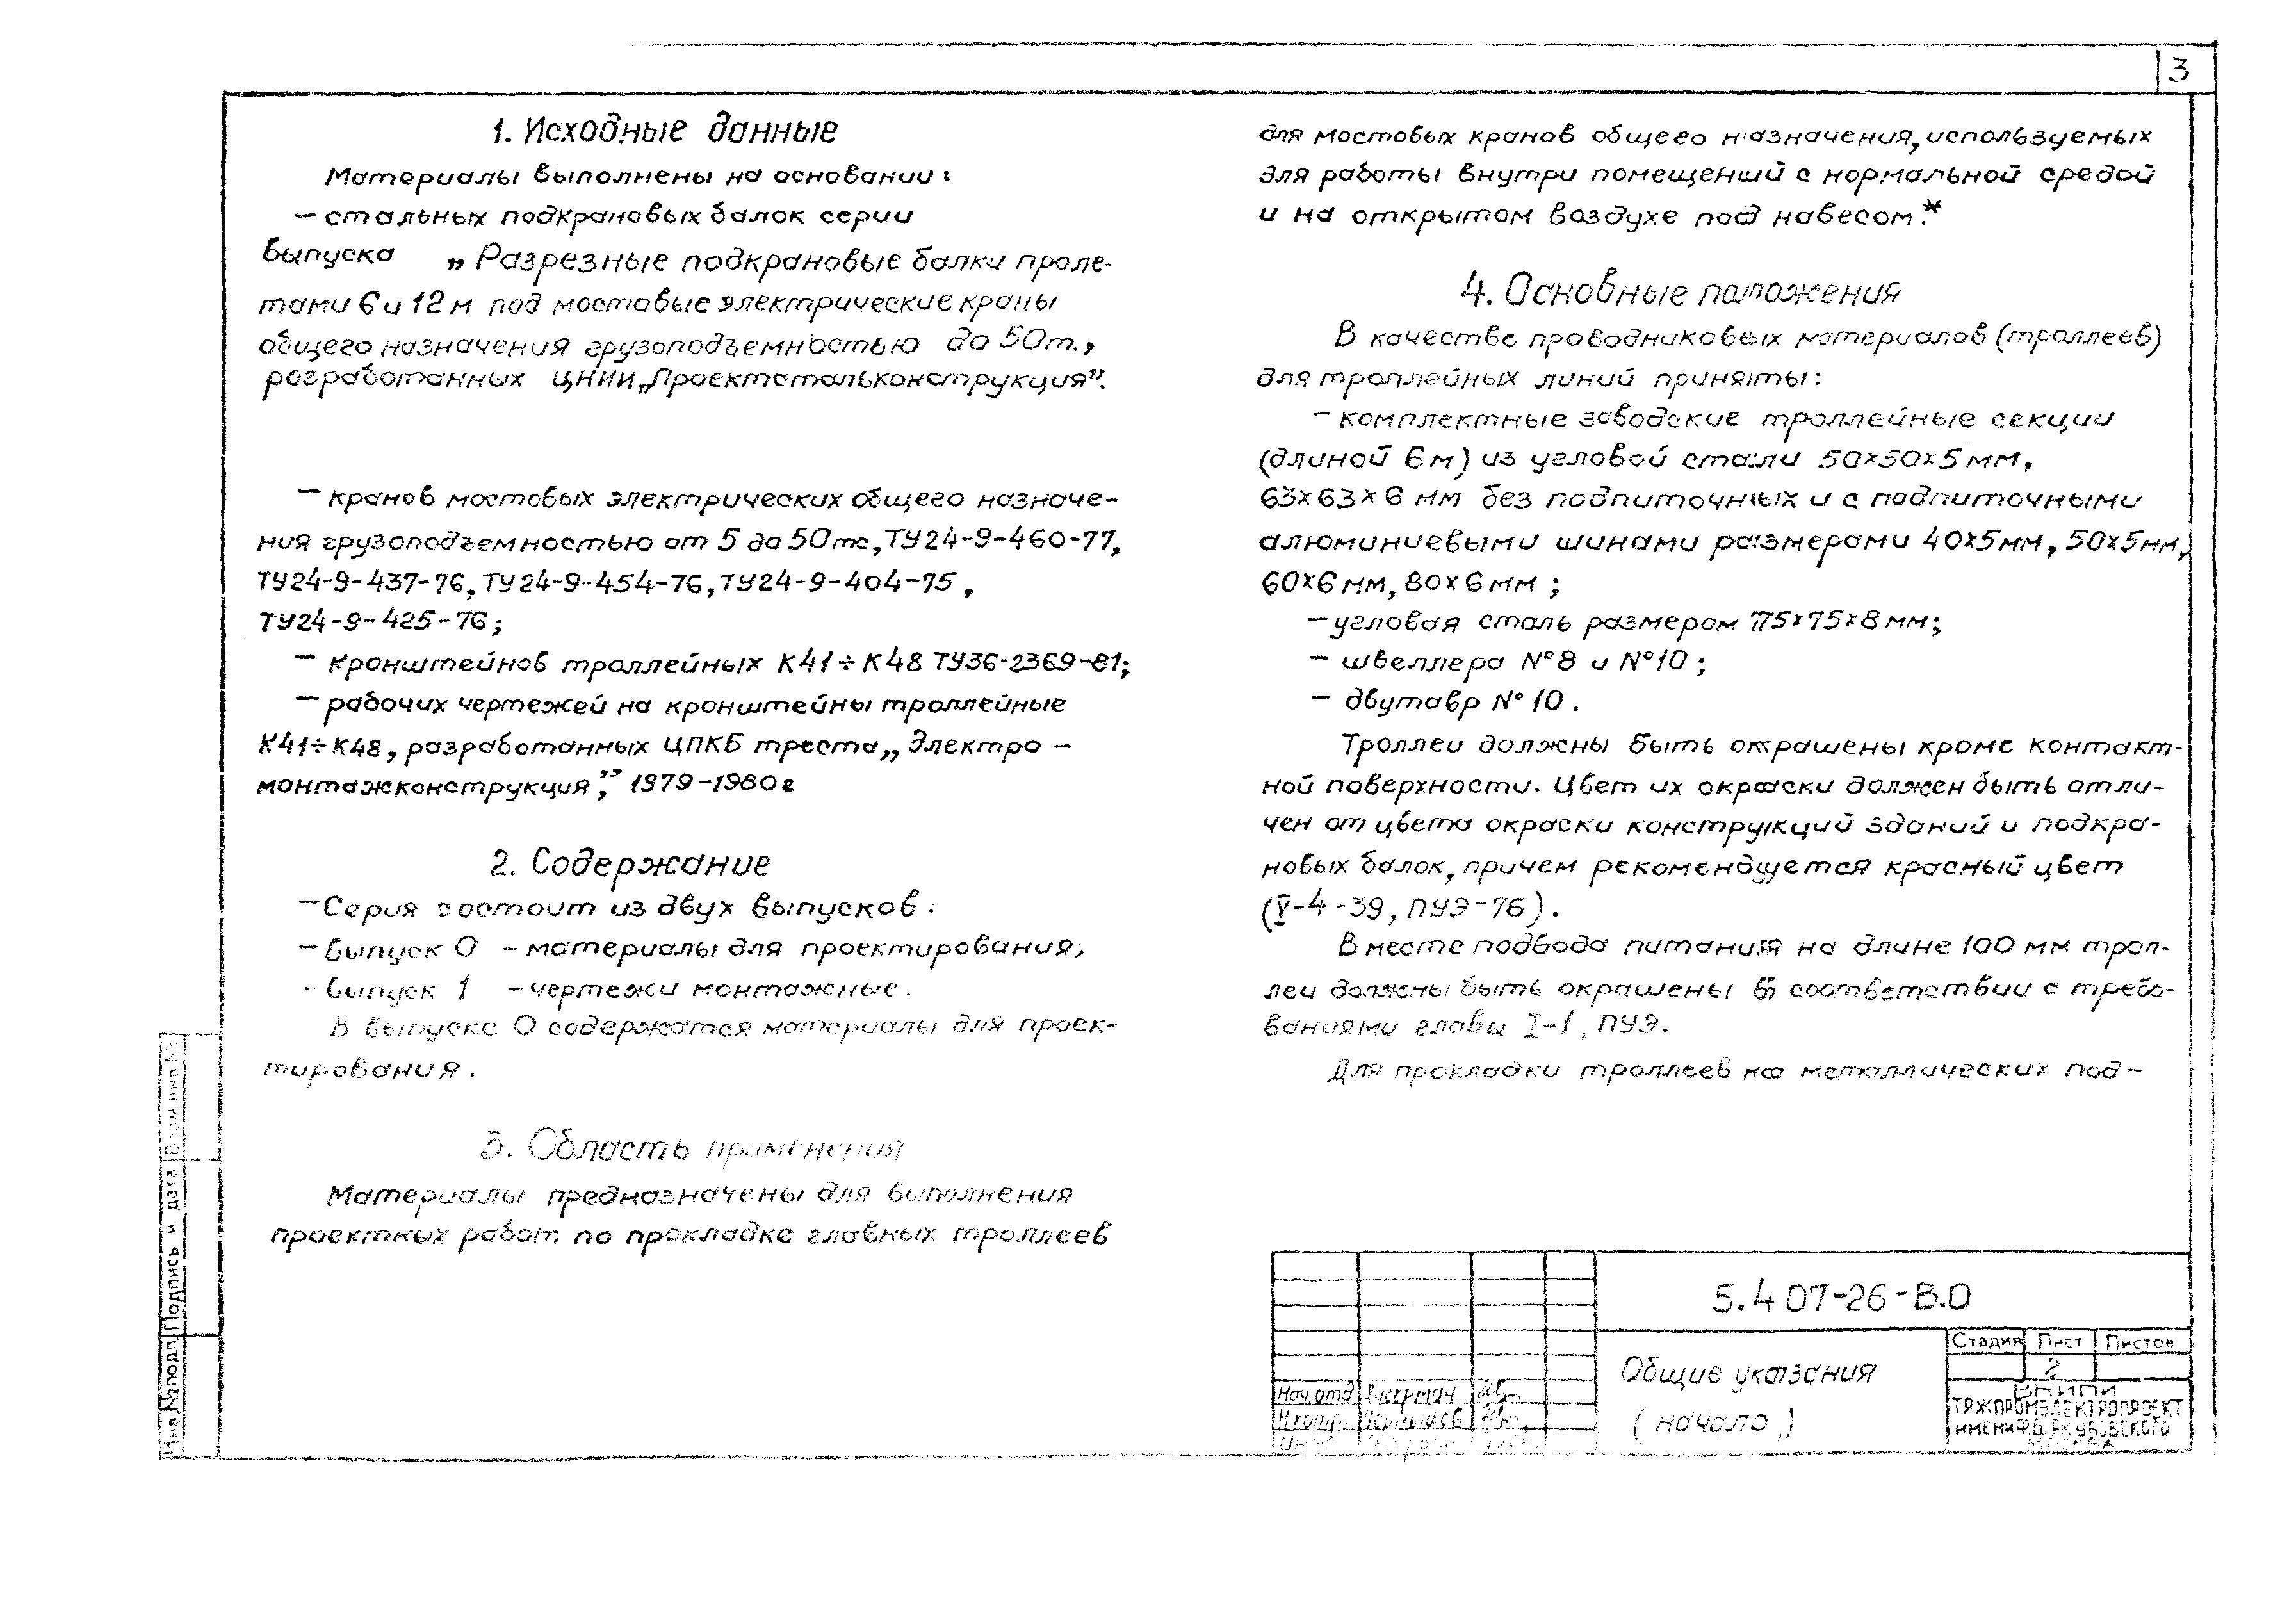 3
1. Исходные данные
Материалы выполнены на основании:
– стальных подкрановых балок серии
выпуска „Разрезные подкрановые балки проле-
тами 6 и 12 м под мостовые электрические краны
общего назначения грузоподъемностью до 50т.,
разработанных ЦНИИ „Проектстальконструкция”.
– кранов мостовых электрических общего назначе-
ния грузоподъемностью от 5 до 50тс, ТУ24-9-460-77,
ТУ24-9-437-76, ТУ24-9-454-76, ТУ24-9-404-75,
ТУ24-9-425-76;
– кронштейнов троллейных К41÷К48 ТУ36-2369-81;
– рабочих чертежей на кронштейны троллейные
К41÷К48, разработанных ЦПКБ треста „Электро-
монтажконструкция”, 1979-1980г
2. Содержание
– Серия состоит из двух выпусков:
– Выпуск 0 – материалы для проектирования;
- Выпуск 1 – чертежи монтажные.
В выпуске 0 содержатся материалы для проек-
тирования.
3. Область применения
Материалы предназначены для выполнения
проектных работ по прокладке главных троллеев
для мостовых кранов общего назначения, используемых
для работы внутри помещений с нормальной средой
и на открытом воздухе под навесом.*
4. Основные положения
В качестве проводниковых материалов (троллеев)
для троллейных линий приняты:
– комплектные заводские троллейные секции
(длиной 6м) из угловой стали 50×50×5 мм,
63×63×6 мм без подпиточных и с подпиточными
алюминиевыми шинами размерами 40×5мм, 50×5мм,
60×6 мм, 80×6 мм;
– угловая сталь размером 75×75×8 мм;
– швеллера №8 и №10;
– двутавр №10.
Троллеи должны быть окрашены кроме контакт-
ной поверхности. Цвет их окраски должен быть отли-
чен от цвета окраски конструкций зданий и подкра-
новых балок, причем рекомендуется красный цвет
(V-4-39, ПУЭ-76).
В месте подвода питания на длине 100 мм трол-
леи должны быть окрашены в соответствии с требо-
ваниями главы I-1, ПУЭ.
Для прокладки троллеев на металлических под-
5.407-26-В.0
Общие указания
(начало)
Стадия Лист Листов
2
ВНИПИ
ТЯЖПРОМЭЛЕКТРОПРОЕКТ
имени Ф.Б. ЯКУБОВСКОГО
МОСКВА
Нач.отд.
Н.контр.
Инв.№подл. Подпись и дата Взам.инв.№